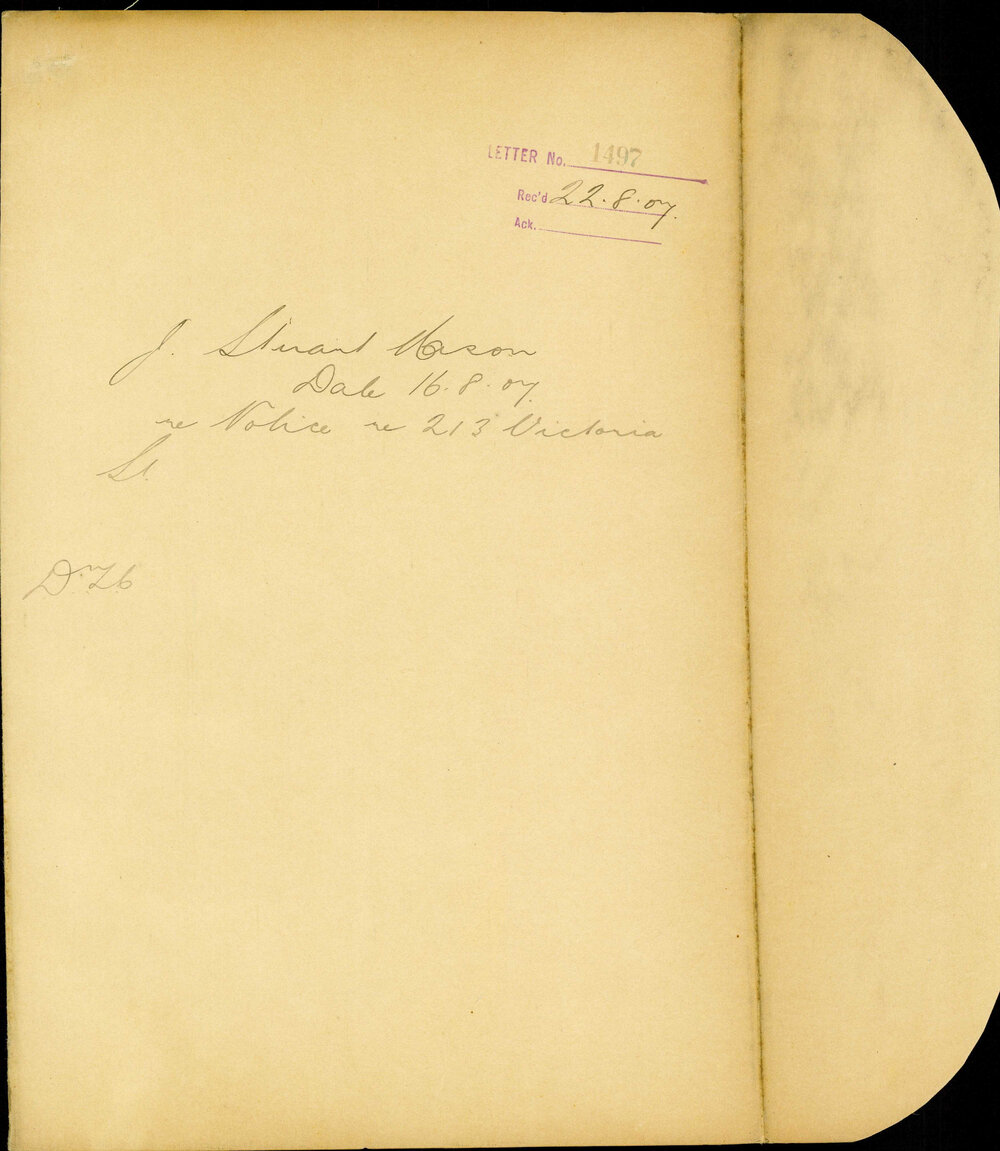 LETTER No. 1497
Rec'd 22.8.07.
Ack.
J. Stuart Mason
Date 16.8.07.
re Notice re 213 Victoria
St.